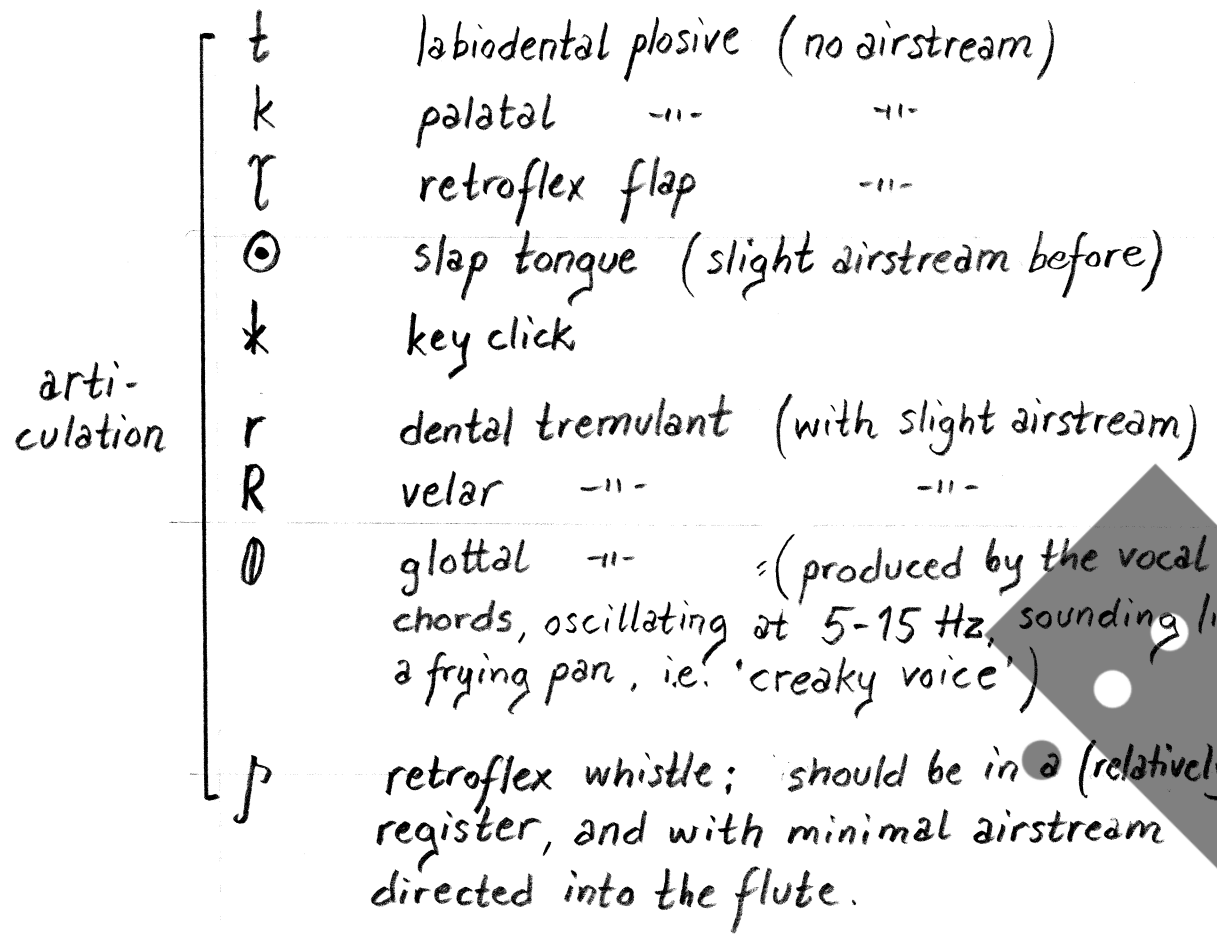 t labiodental plosive (no airstream)
k palatal -11- -11-
retroflex flap -11-
⊙ slap tongue (slight airstream before)
k key click
arti-
culation
r dental tremulant (with slight airstream)
R velar -11- -11-
glottal -11- (produced by the vocal
chords, oscillating at 5-15 Hz, sounding
a frying pan, i.e. 'creaky voice')
retroflex whistle; should be in a (relatively
register, and with minimal airstream
directed into the flute.